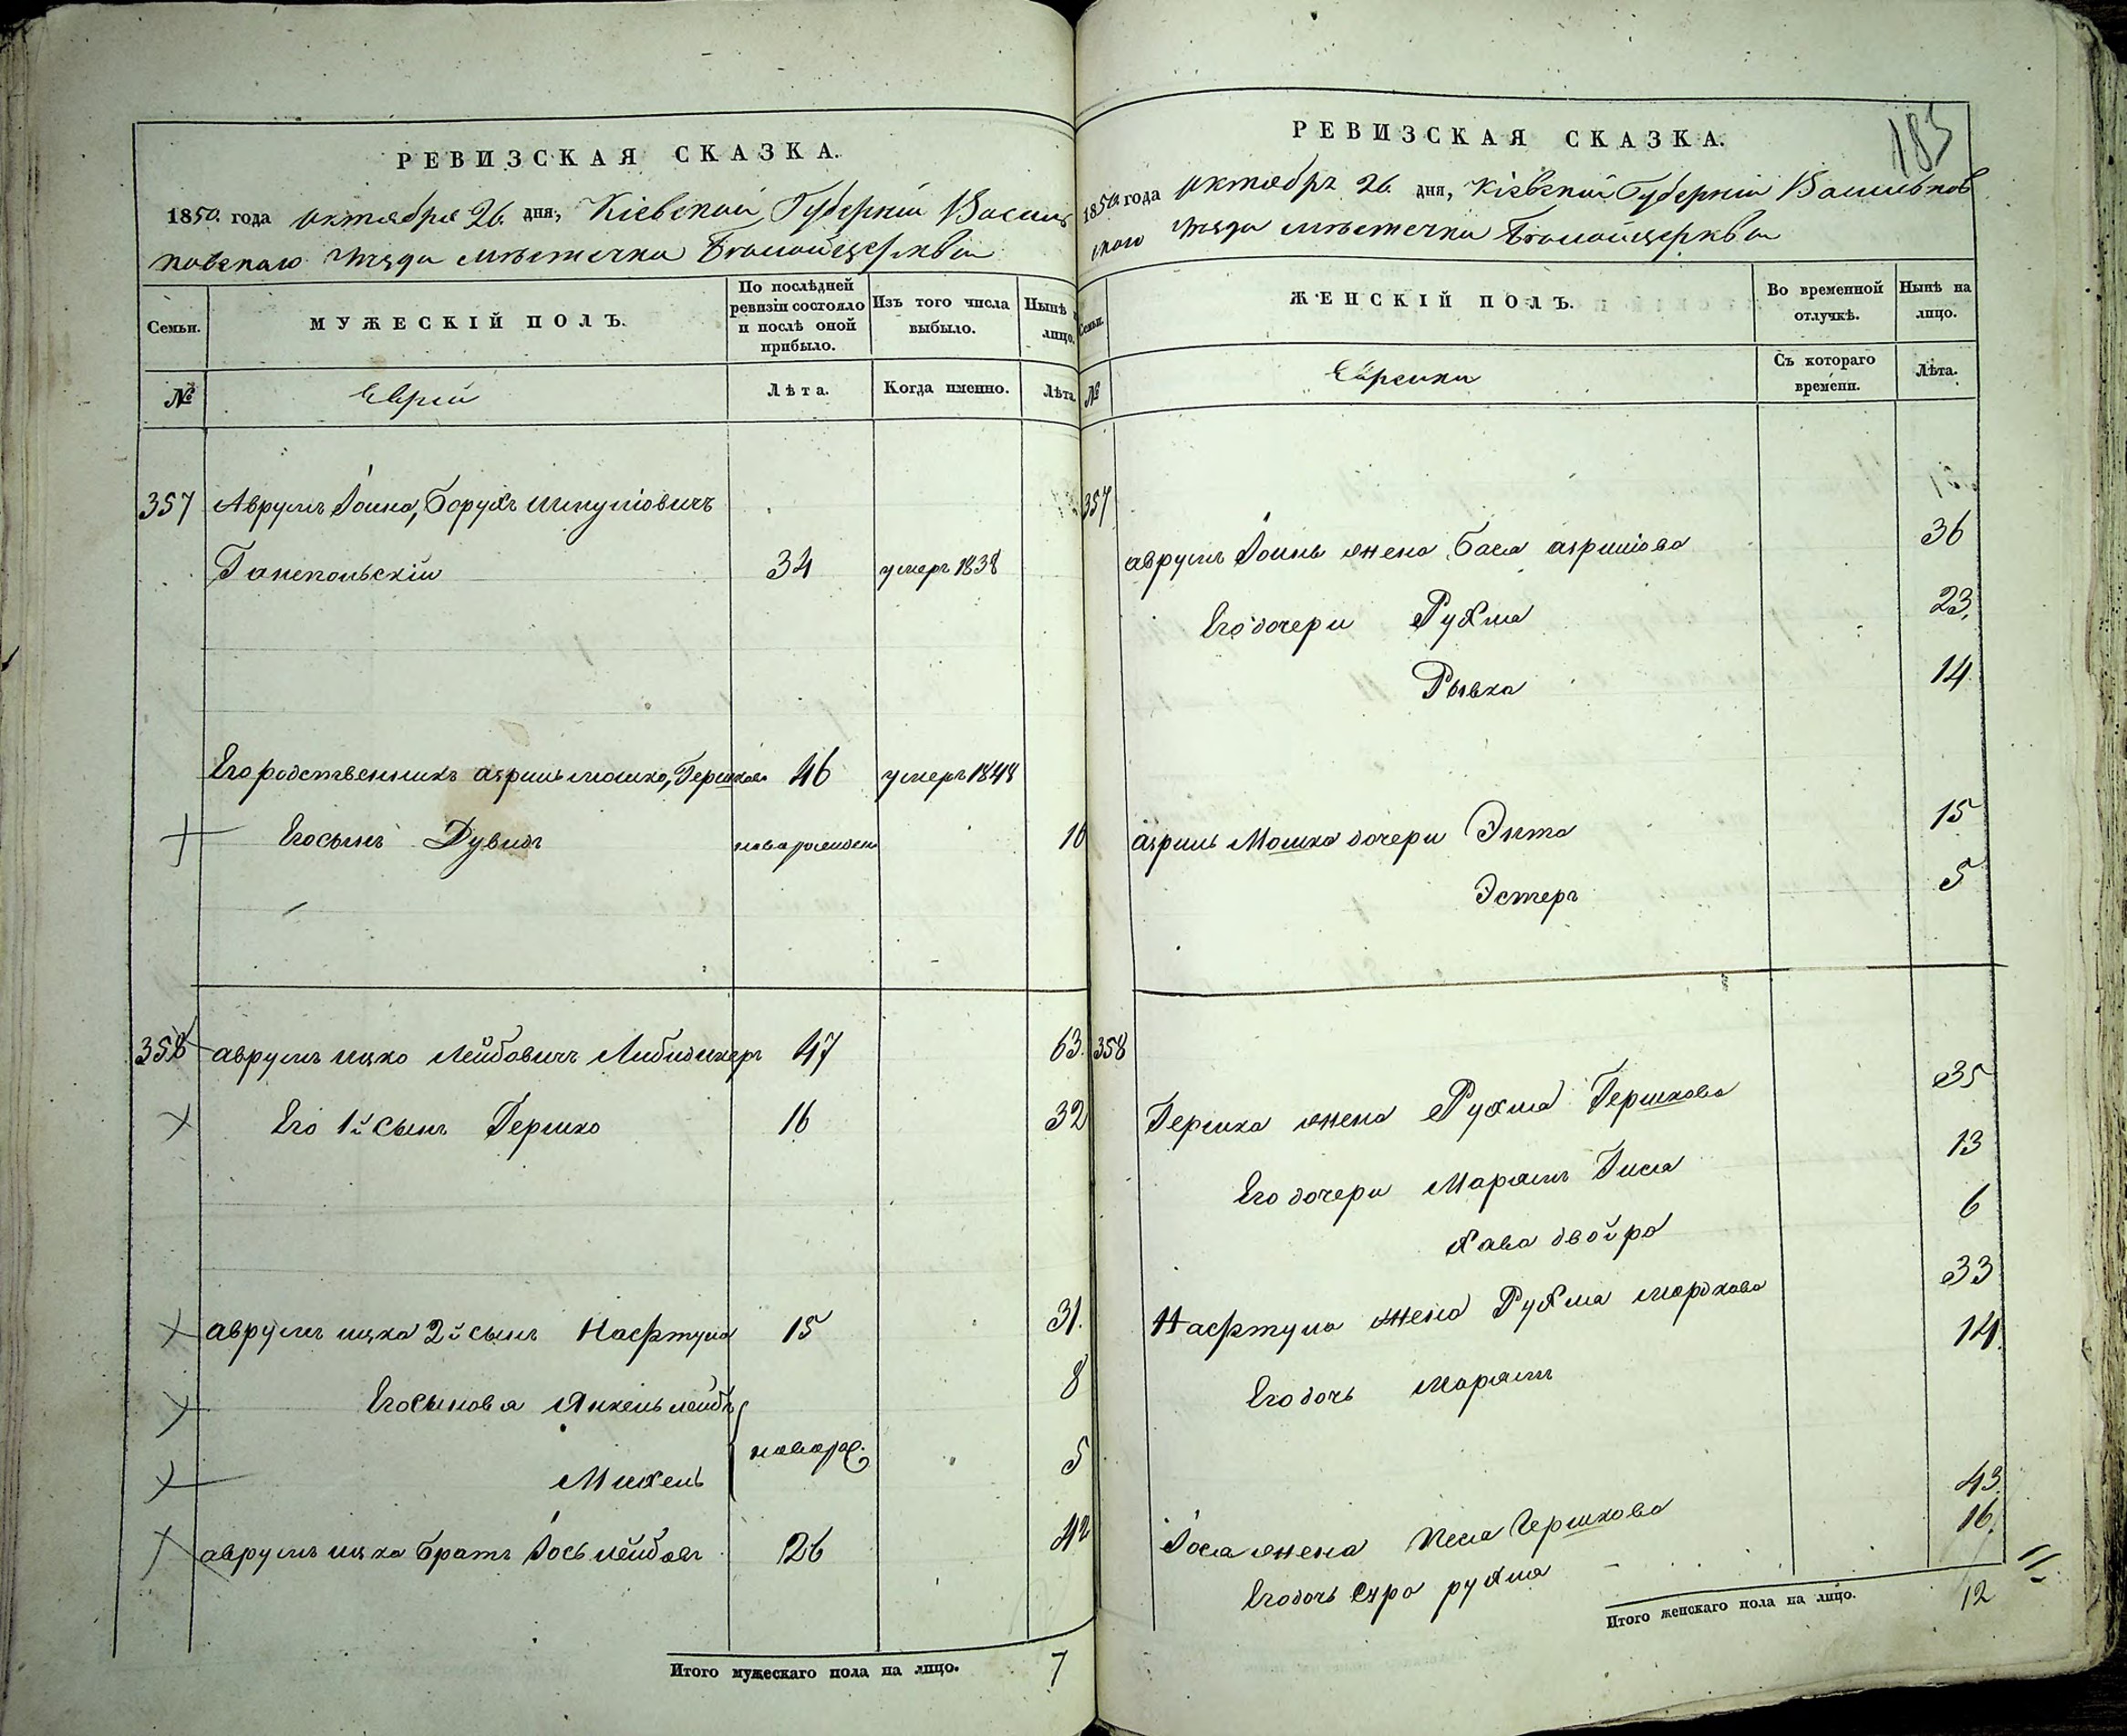 РЕВИЗСКАЯ СКАЗКА.
1850. года октября 26. дня, Кіевской Губерніи Василь
ковскаго уезда местечка Белойцеркви
Семьи.
МУЖЕСКІЙ ПОЛЪ.
По послѣдней ревизіи состояло и послѣ оной прибыло.
Изъ того числа выбыло.
Нынѣ на лицо.
№
Еврей
Лѣта.
Когда именно.
Лѣта.
357 Аврумъ Іоина, Борухъ Шмулiовичъ
Ганопольскій 34 умеръ 1838
Его родственникъ азриль мошко, Гершков 46 умеръ 1848
Его сынъ Дувидъ новорожден 16
358 аврумъ ицко Лейбовичъ 47 63.
Его 1й сынъ Гершко 16 32
аврумъ ицка 2й сынъ Нафтула 15 31.
Его сыновя Янкель лейбъ 8
новорож.
Михель 5
аврумъ ицка братъ Іось лейбов 26 42
Итого мужескаго пола на лицо. 7
183
РЕВИЗСКАЯ СКАЗКА.
1850. года октябр 26. дня, Кіевской Губерніи Васильков
скаго уезда местечка Белойцеркви
Семьи.
ЖЕНСКІЙ ПОЛЪ.
Во временной отлучкѣ.
Нынѣ на лицо.
№
Еврейки
Съ котораго времени.
Лѣта.
357
аврумъ Іоинъ жена Бася азриліова 36
Его дочери Рухля 23.
Рывка 14.
азриль Мошка дочери Энта 15
Эстеръ 5
358
Гершка жена Рухля Гершкова 35
Его дочери Марямъ Гися 13
Хава двойра 6
Нафтула жена Рухля мордкова 33
Его дочь марямъ 14.
Іося жена Песя Гершкова 43.
Его дочь сура рухля 16.
Итого женскаго пола на лицо. 12